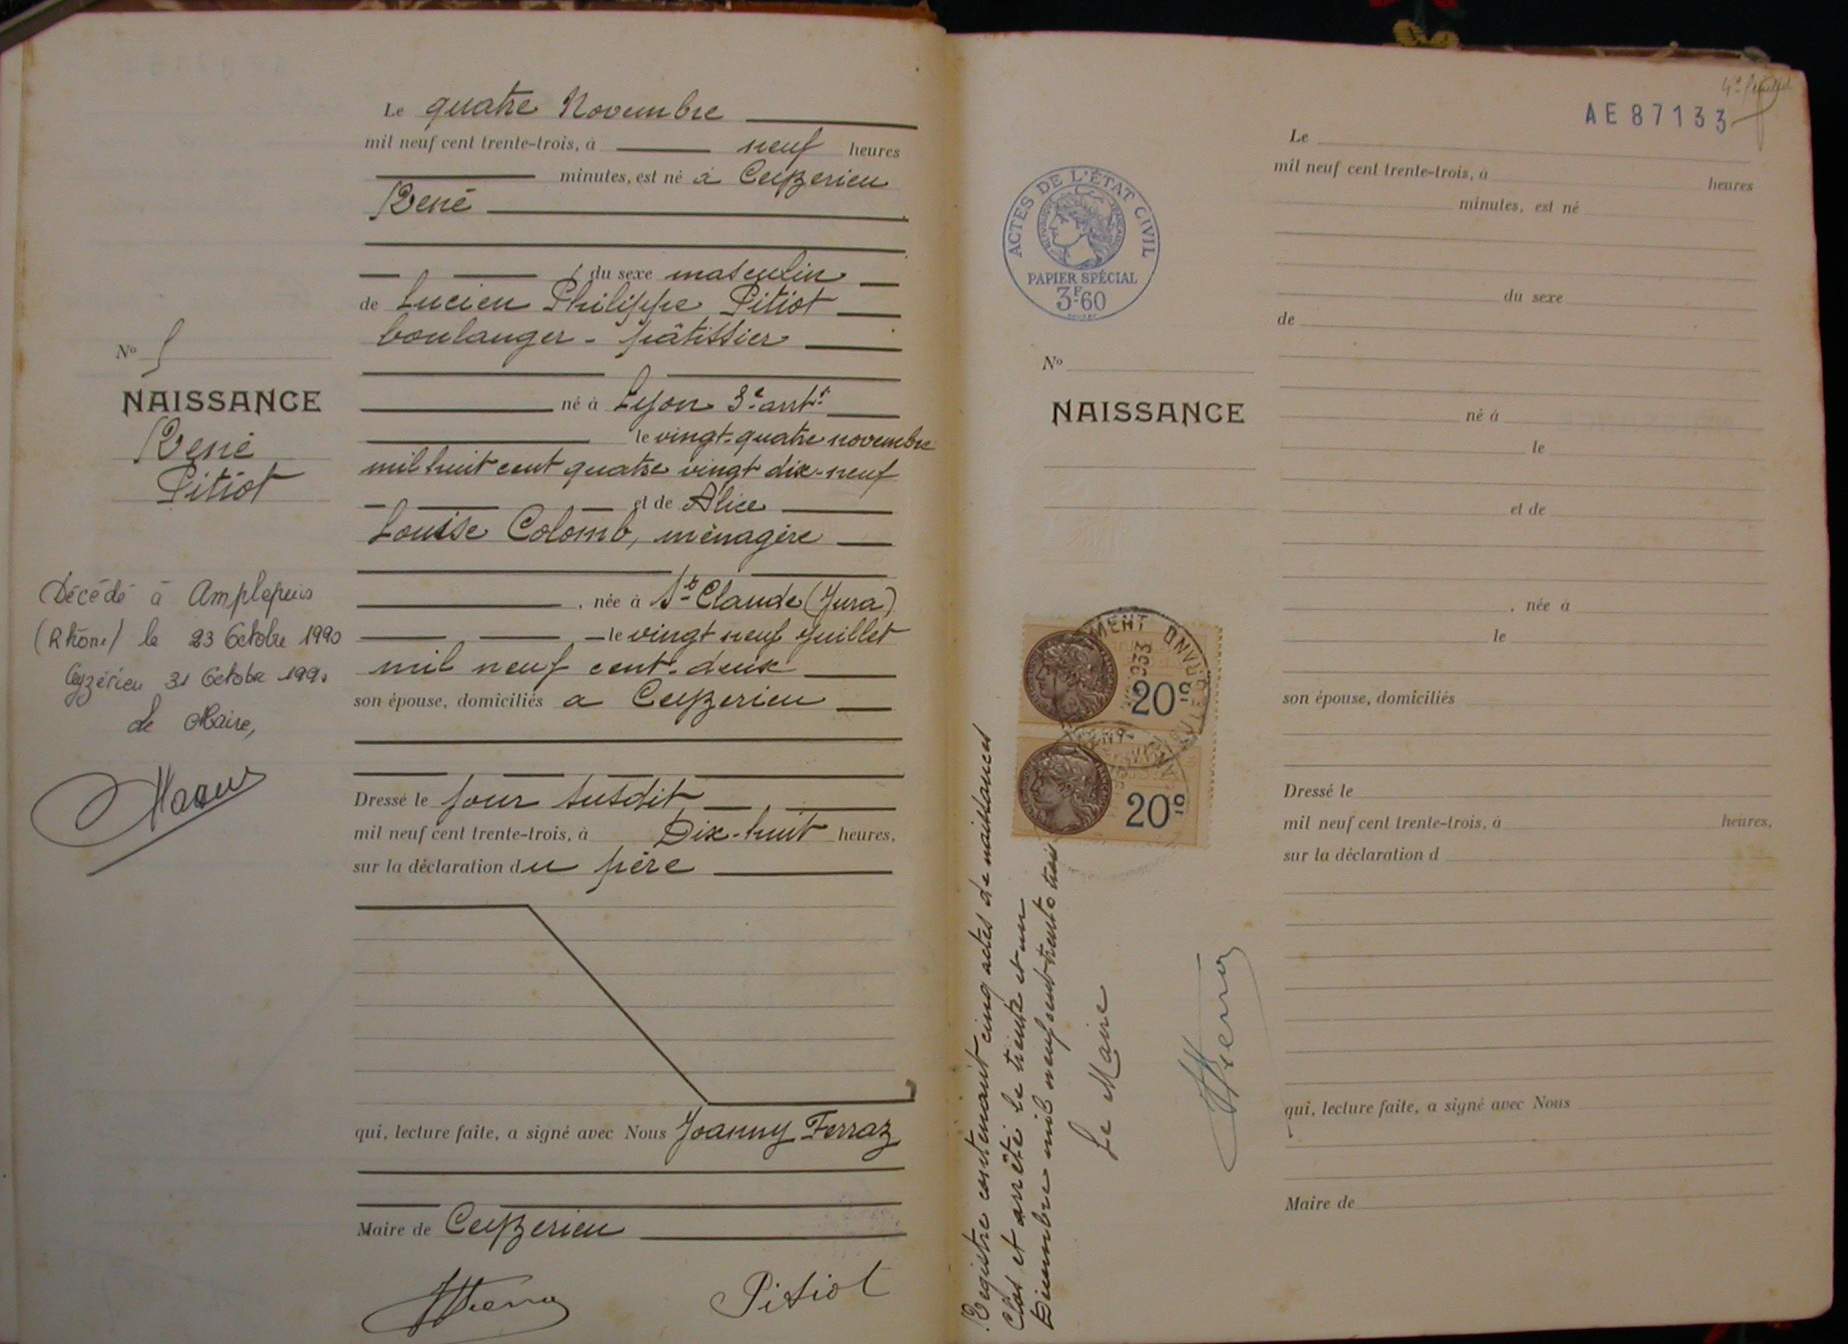 Le quatre Novembre
mil neuf cent trente-trois, à neuf heures
minutes, est né à Ceyzerieu
René
du sexe masculin
de Lucien Philippe Pitiot
boulanger - pâtissier
né à Lyon 3e arrt
le vingt-quatre novembre
mil huit cent quatre vingt dix-neuf
et de Alice
Louise Colomb, ménagère
, née à St Claude (Jura)
le vingt neuf Juillet
mil neuf cent-deux
son épouse, domiciliés a Ceyzerieu
Dressé le jour susdit
mil neuf cent trente-trois, à Dix-huit heures,
sur la déclaration du père
qui, lecture faite, a signé avec Nous Joanny Ferraz
Maire de Ceyzerieu
Pitiot
No 5
NAISSANCE
René
Pitiot
Décédé à Amplepuis
(Rhône) le 23 Octobre 1990
Ceyzérieu 31 Octobre 1990
Le Maire,
AE87133
ACTES DE L'ÉTAT CIVIL
PAPIER SPÉCIAL
3F60
No
NAISSANCE
20c
20c
Registre contenant cinq actes de naissances
Clos et arrêté le trente et un
Décembre mil neuf cent trente trois
Le Maire
Le
mil neuf cent trente-trois, à heures
minutes, est né
du sexe
de
né à
le
et de
, née à
le
son épouse, domiciliés
Dressé le
mil neuf cent trente-trois, à heures,
sur la déclaration d
qui, lecture faite, a signé avec Nous
Maire de